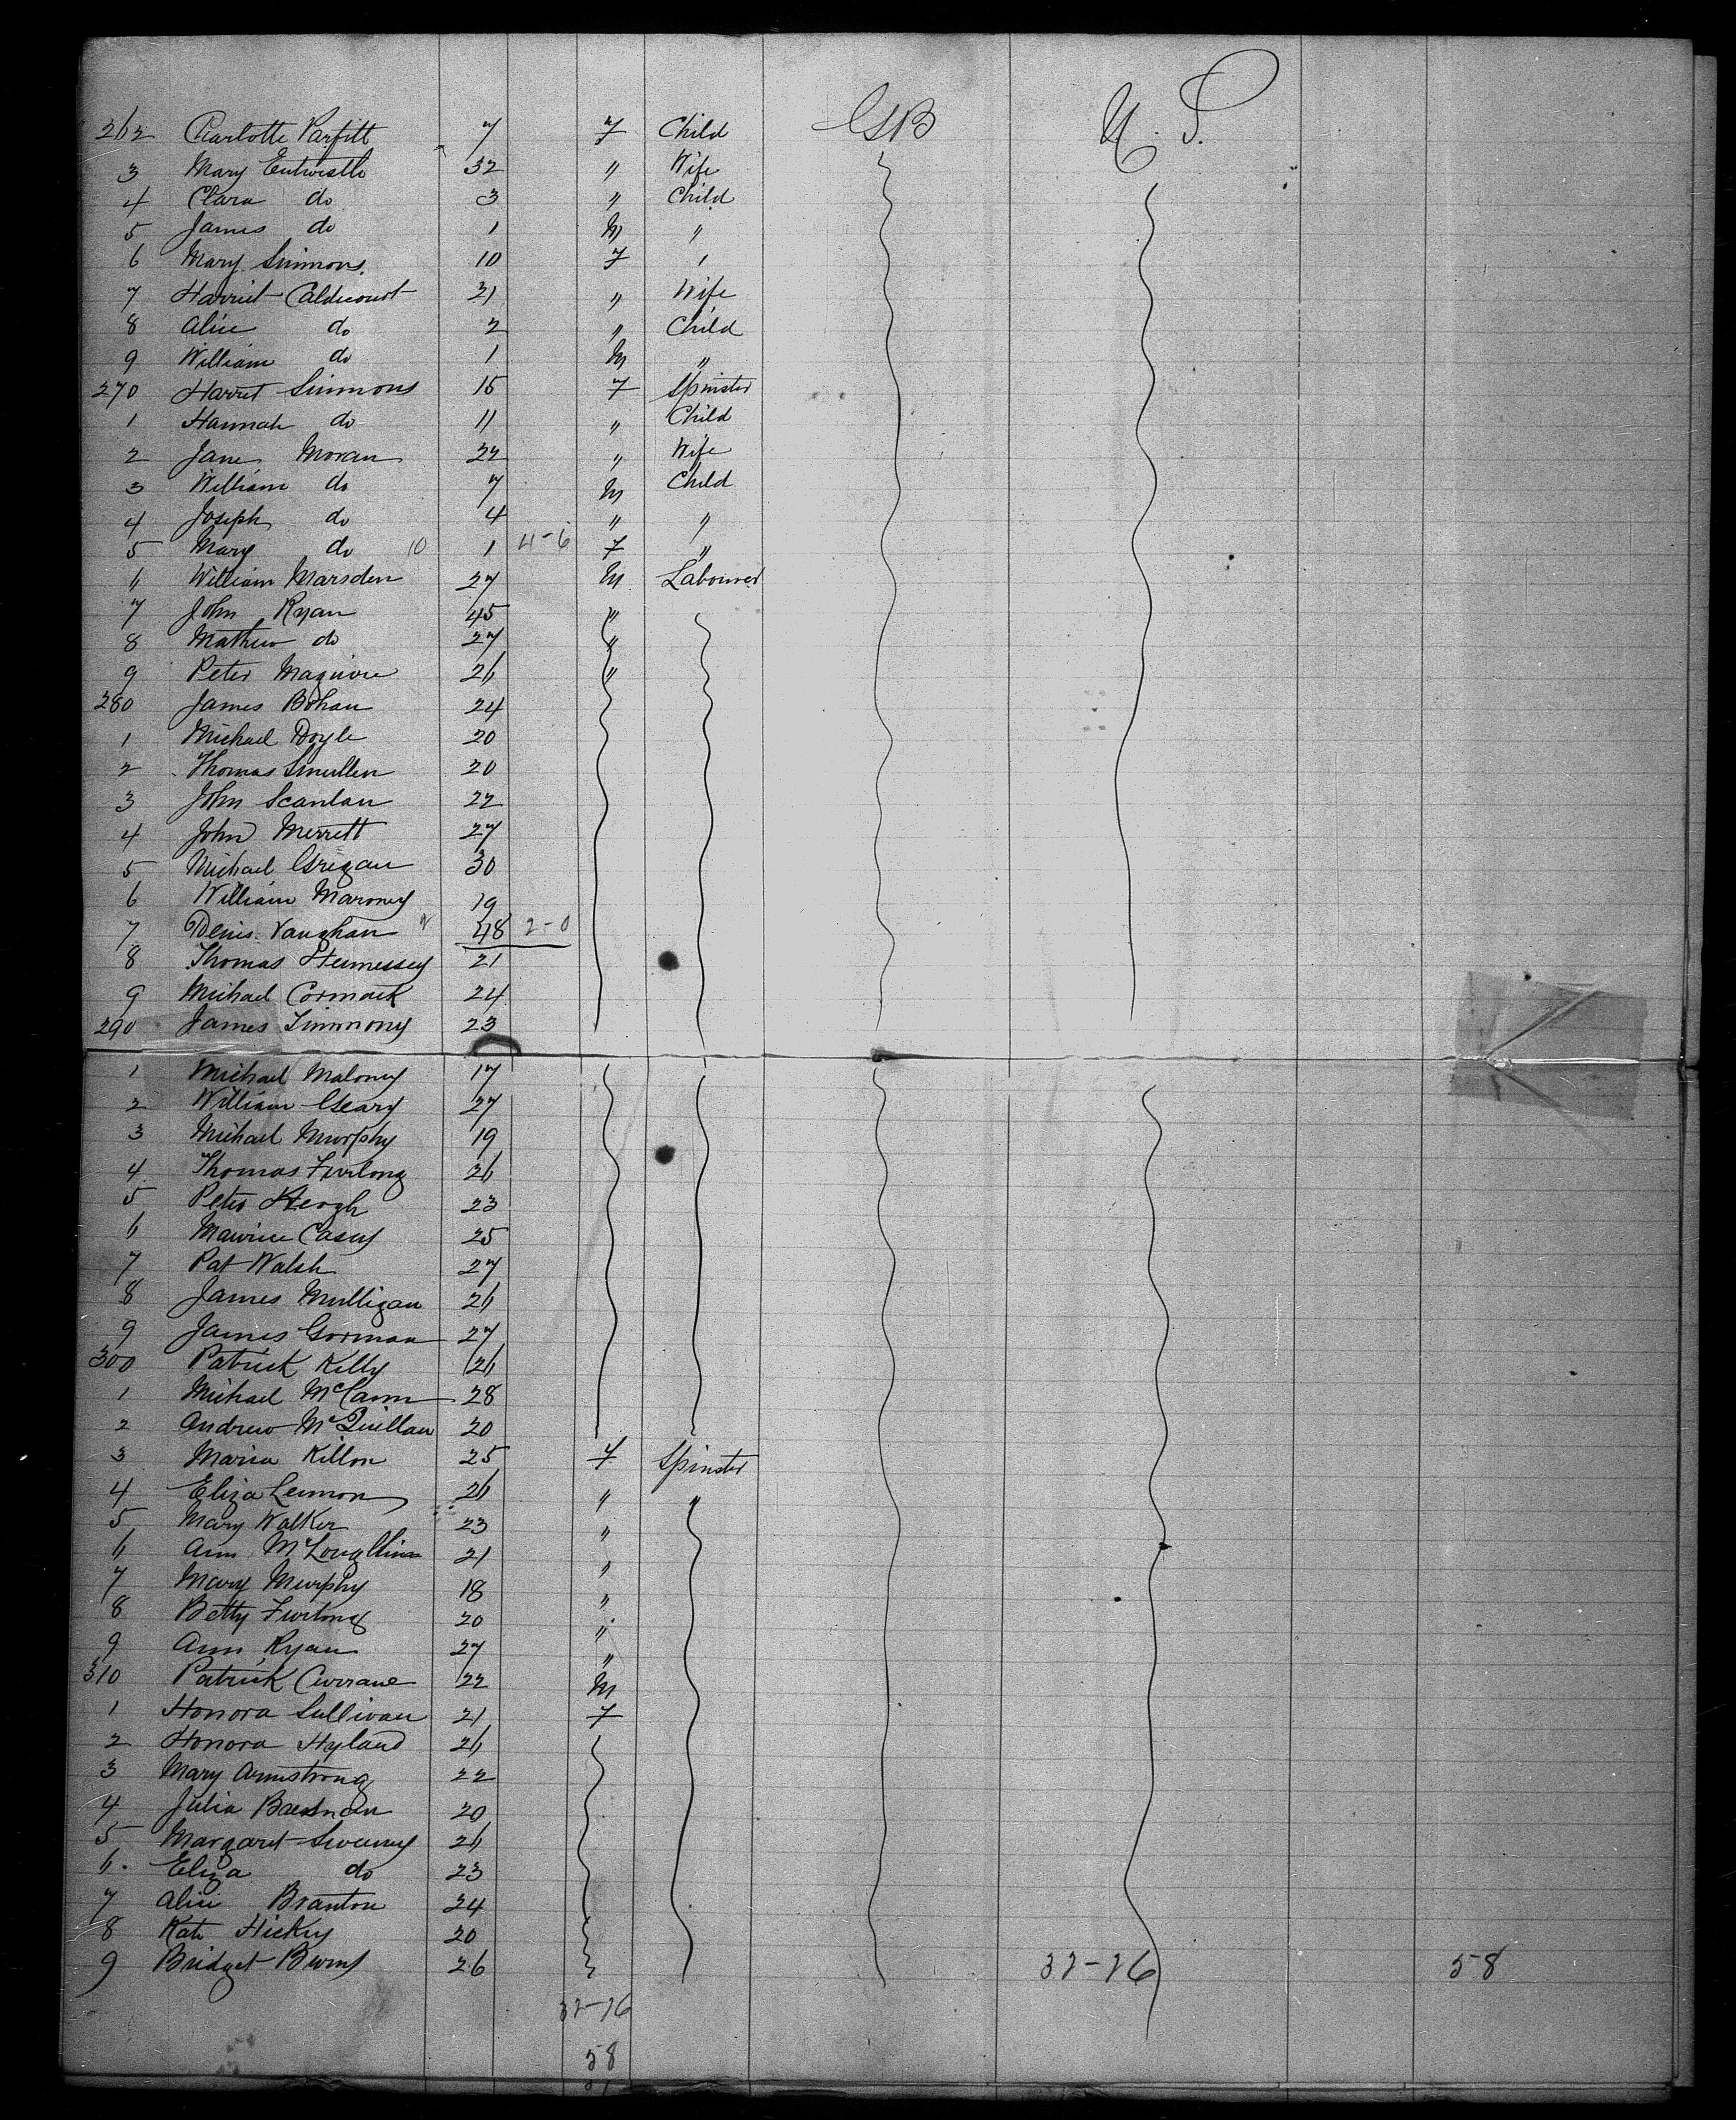 262 Charlotte Parfitt 7 F Child GB U.S.
3 Mary Entwistle 32 " Wife
4 Clara do 3 " Child
5 James do 1 M "
6 Mary Simmons 10 F "
7 Harriet Caldicourt 21 " Wife
8 Alice do 2 " Child
9 William do 1 M "
270 Harriet Simmons 15 F Spinster
1 Hannah do 11 " Child
2 Jane Moran 22 " Wife
3 William do 7 M Child
4 Joseph do 4 " "
5 Mary do 10 1 4-6 F "
6 William Marsden 27 M Labourer
7 John Ryan 45 "
8 Mathew do 27 "
9 Peter Maguire 26 "
280 James Bohan 24
1 Michael Doyle 20
2 Thomas Smullen 20
3 John Scanlan 22
4 John Merrett 27
5 Michael Grigan 30
6 William Maroney 19
7 Denis Vaughan " 48 2-0
8 Thomas Hennessey 21
9 Michael Cormack 24
290 James Timmony 23
1 Michael Maloney 17
2 William Geary 27
3 Michael Murphy 19
4 Thomas Furlong 26
5 Peter Keogh 23
6 Maurice Casey 25
7 Pat Walsh 27
8 James Mulligan 26
9 James Gorman 27
300 Patrick Killy 26
1 Michael McCann 28
2 Andrew McQuillan 20
3 Maria Killon 25 F Spinster
4 Eliza Lennon 26 " "
5 Mary Walker 23 "
6 Ann McLoughlin 21 "
7 Mary Murphy 18 "
8 Betty Furlong 20 "
9 Ann Ryan 27 "
310 Patrick Currane 22 M
1 Honora Sullivan 21 F
2 Honora Hyland 26
3 Mary Armstrong 22
4 Julia 20
5 Margaret Sweeney 26
6 Eliza do 23
7 Alice Branton 24
8 Kate Hickey 20
9 Bridget Burns 26 32-26 58
32-26
58